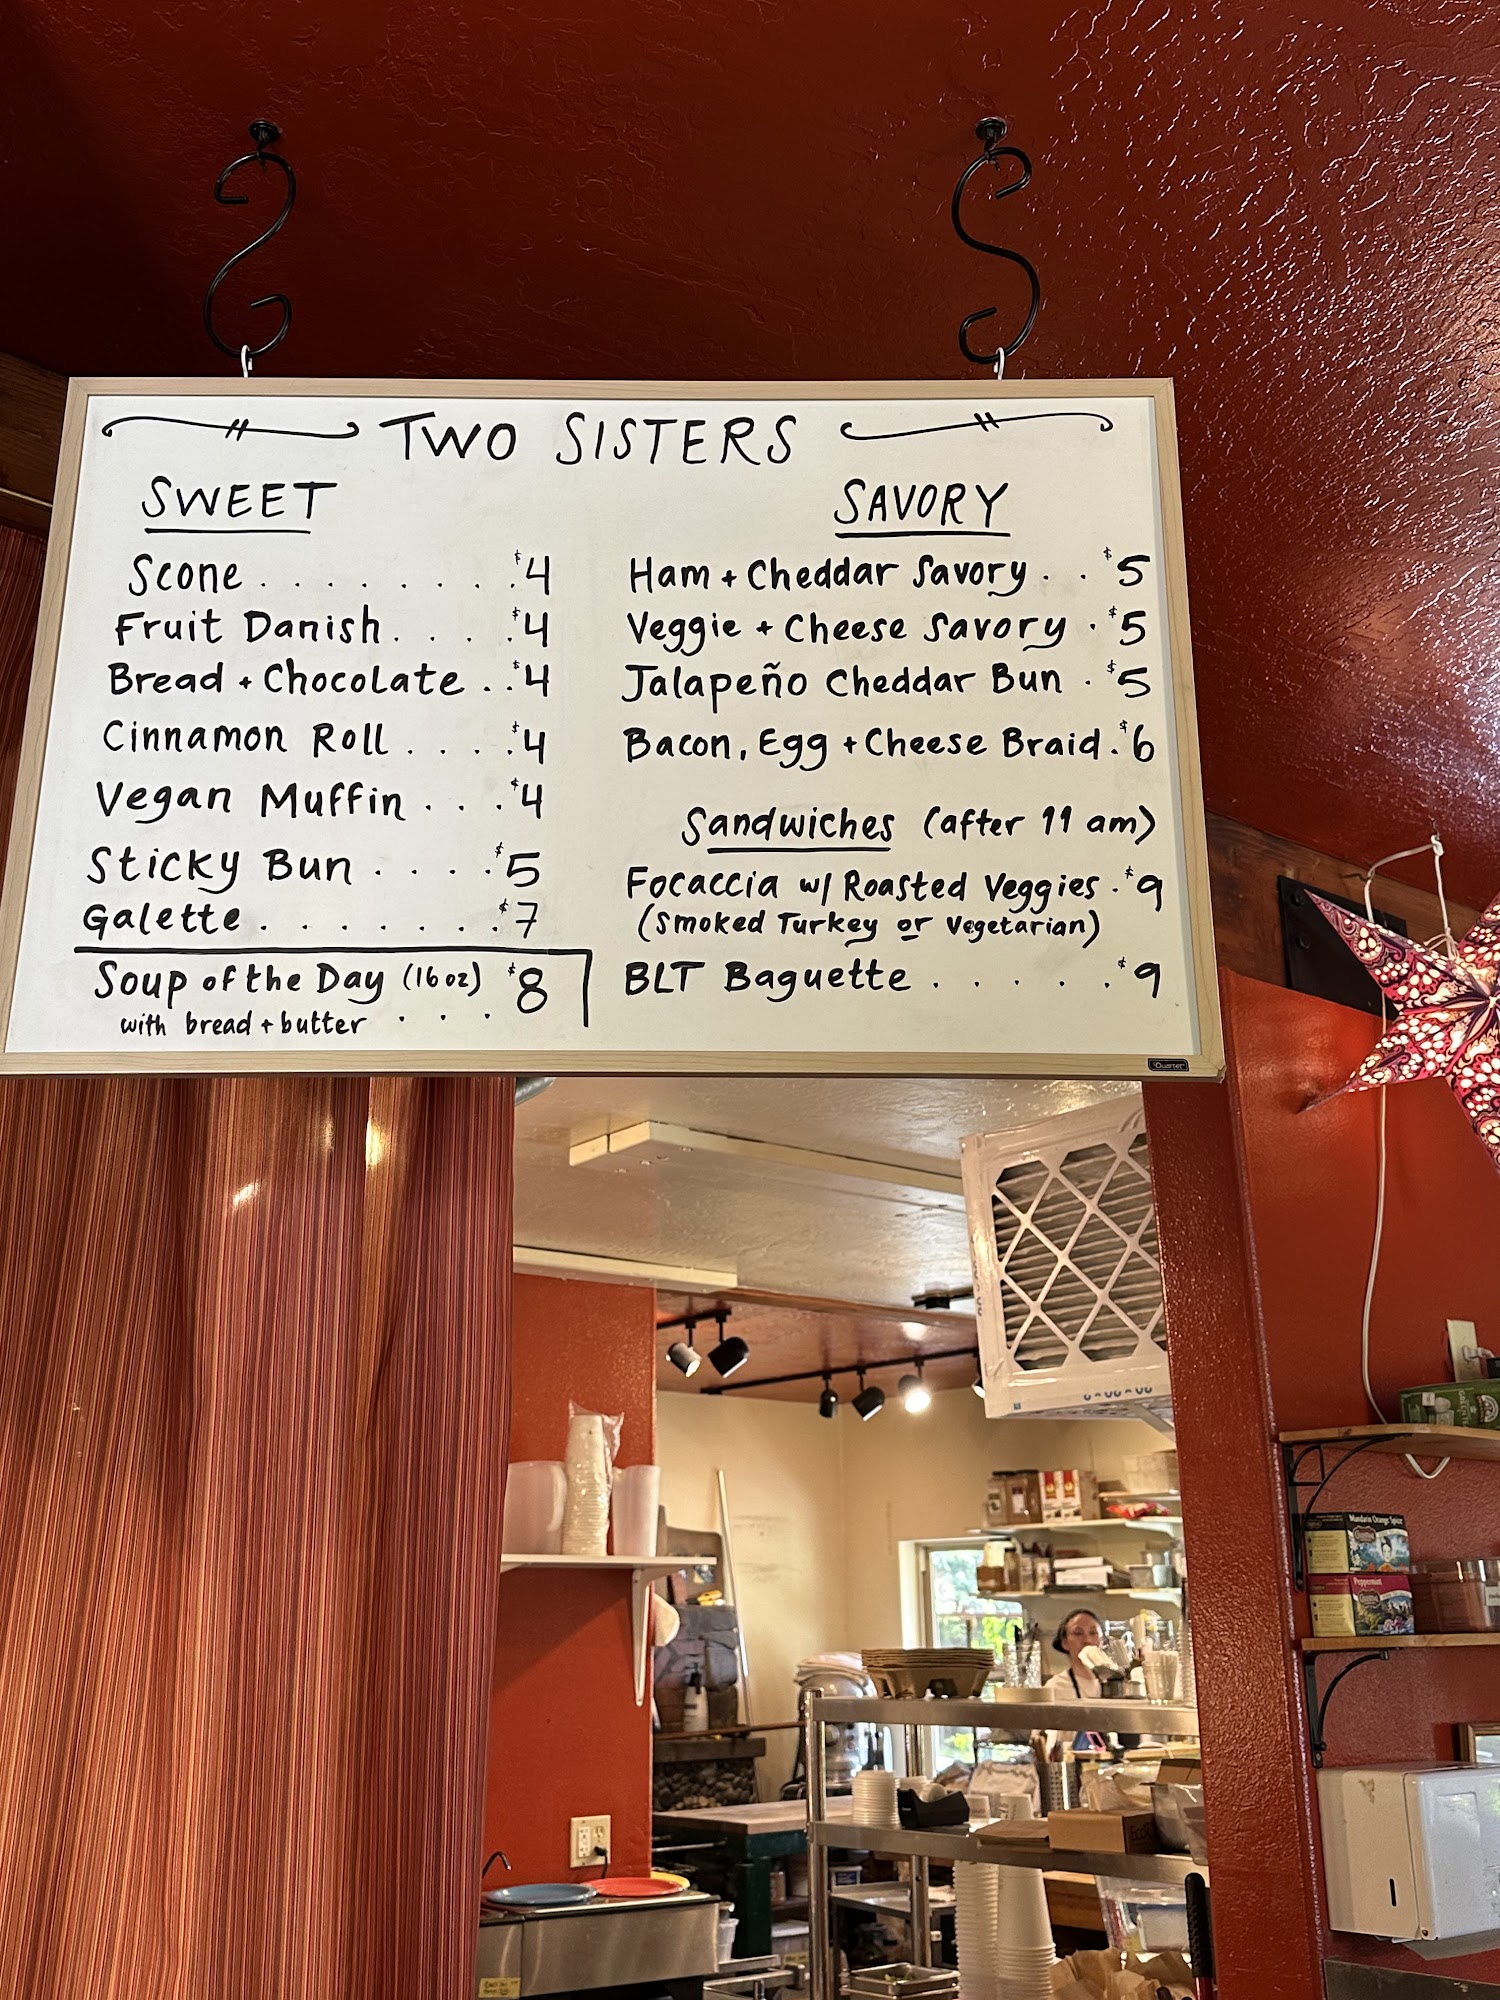 TWO SISTERS
SWEET
Scone . . . . . . . . . $4
Fruit Danish . . . . . $4
Bread + Chocolate . . $4
Cinnamon Roll . . . . . $4
Vegan Muffin . . . . $4
Sticky Bun . . . . . $5
Galette . . . . . . . . $7
Soup of the Day (16 oz) $8
with bread + butter . . .
SAVORY
Ham + Cheddar Savory . . $5
Veggie + Cheese Savory . $5
Jalapeño Cheddar Bun . $5
Bacon, Egg + Cheese Braid . $6
Sandwiches (after 11 am)
Focaccia w/ Roasted Veggies . $9
(Smoked Turkey or Vegetarian)
BLT Baguette . . . . . $9
Quartet
Mandarin Orange Spice
Peppermint